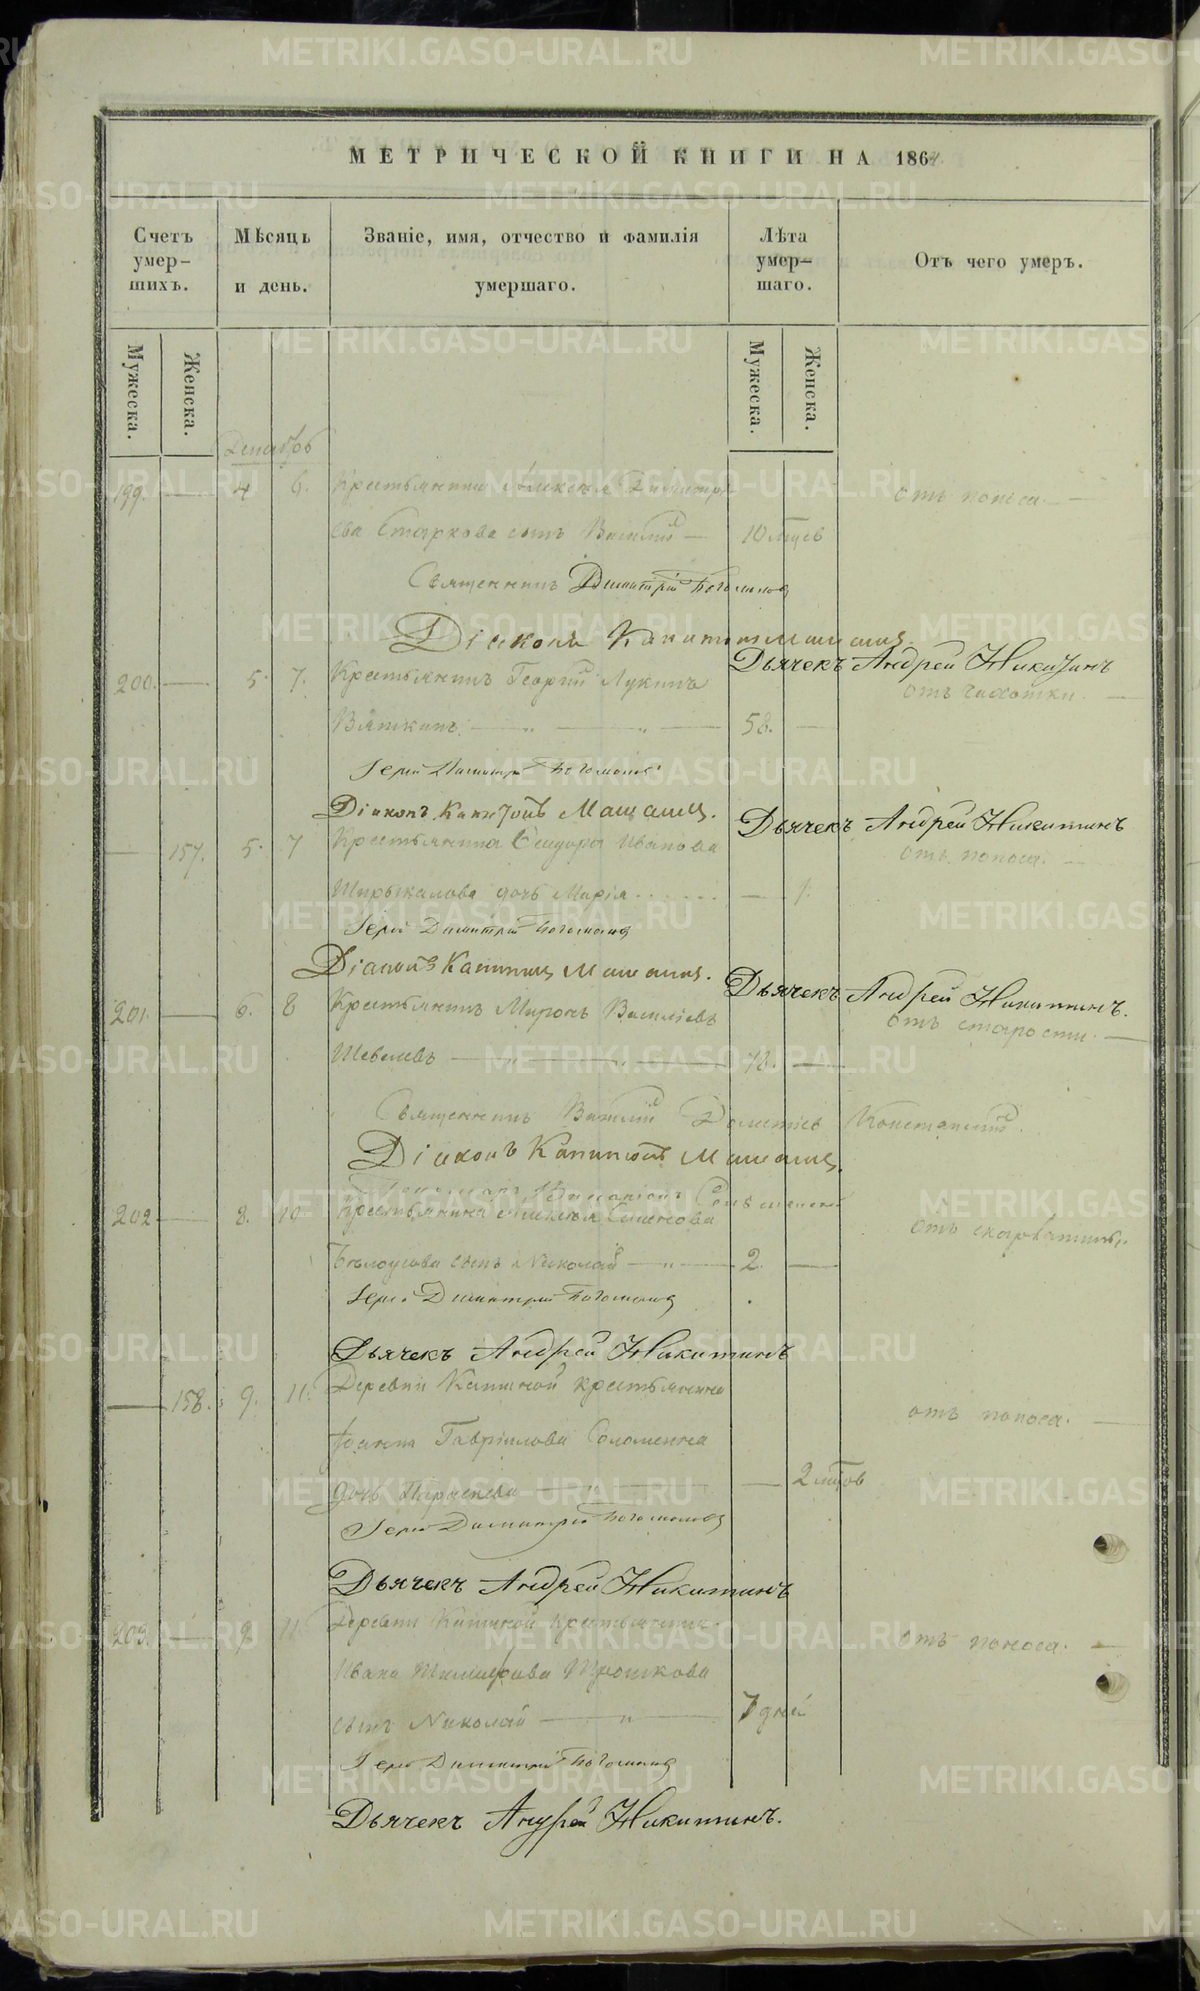 МЕТРИЧЕСКОЙ КНИГИ НА 1864.
Счетъ умер-шихъ.
Мѣсяцъ и день.
Званіе, имя, отчество и фамилія умершаго.
Лѣта умер-шаго.
Отъ чего умеръ.
Мужеска.
Женска.
Мужеска.
Женска.
Декабрь
199. 4 6. Крестьянина Алексѣя Димитрі-
отъ поноса.
ева Старкова сынъ Василій 10 лѣтъ
Священникъ Димитрій Богомоловъ
Діаконъ Капитонъ
Дьячекъ Андрей Никитинъ
200. 5. 7. Крестьянинъ Георгій Лукинъ
отъ чахотки.
Вяткинъ. 58.
Іерей Димитрій Богомоловъ
Діаконъ Капитонъ
Дьячекъ Андрей Никитинъ
157. 5. 7 Крестьянина Ѳеодора Иванова
отъ поноса.
дочь Марія 1.
Іерей Димитрій Богомоловъ
Діаконъ Капитонъ
Дьячекъ Андрей Никитинъ.
201. 6. 8 Крестьянинъ Миронъ Василіевъ
отъ старости.
Шевелевъ 78.
Священникъ Василій Константинъ
Діаконъ Капитонъ
Пономарь
202 8. 10 Крестьянина Алексѣя Семенова
отъ скарлатины.
Бѣлоусова сынъ Николай 2.
Іерей Димитрій Богомоловъ
Дьячекъ Андрей Никитинъ
158. 9. 11. Деревни крестьянина
отъ поноса.
Іоанна Гавріилова Соломеина
дочь Параскева 2 лѣтъ
Іерей Димитрій Богомоловъ
Дьячекъ Андрей Никитинъ
203. 9. 11 Деревни крестьянина
отъ поноса.
Ивана Трошкова
сынъ Николай 7 дней
Іерей Димитрій Богомоловъ
Дьячекъ Андрей Никитинъ.
METRIKI.GASO-URAL.RU